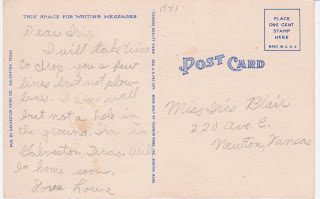 THIS SPACE FOR WRITING MESSAGES
1941
PLACE
ONE CENT
STAMP
HERE
MADE IN U.S.A.
POST CARD
Dear Iris
I will take time
to drop you a few
lines but not plow
lines. I am well
but not a hole in
the ground. I'm in
Galveston, Texas. Will
be home soon.
Love
Miss Iris Blair
220 Ave. C.
Newton, Kansas
PUB. BY GALVESTON NEWS CO., GALVESTON, TEXAS